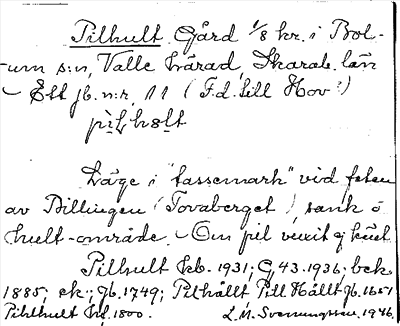 Pilhult Gård 1/8 kr. i Bol-
um s:n, Valle härad, Skarab. län
– Ett jb. n:r, 11 (F.d. till Hov?)
pìlhùlt
Läge i "tassemark" vid foten
av Billingen (Tovaberget), sank ö
hult-område. – Om pil vuxit ej känt
Pilhult kb. 1931; G 43. 1936; bek.
1885; ek.; jb. 1749; Pilhållt Pill Hållt jb. 1651
Pihlhult 1800. L. M. Svenungsson. 1946